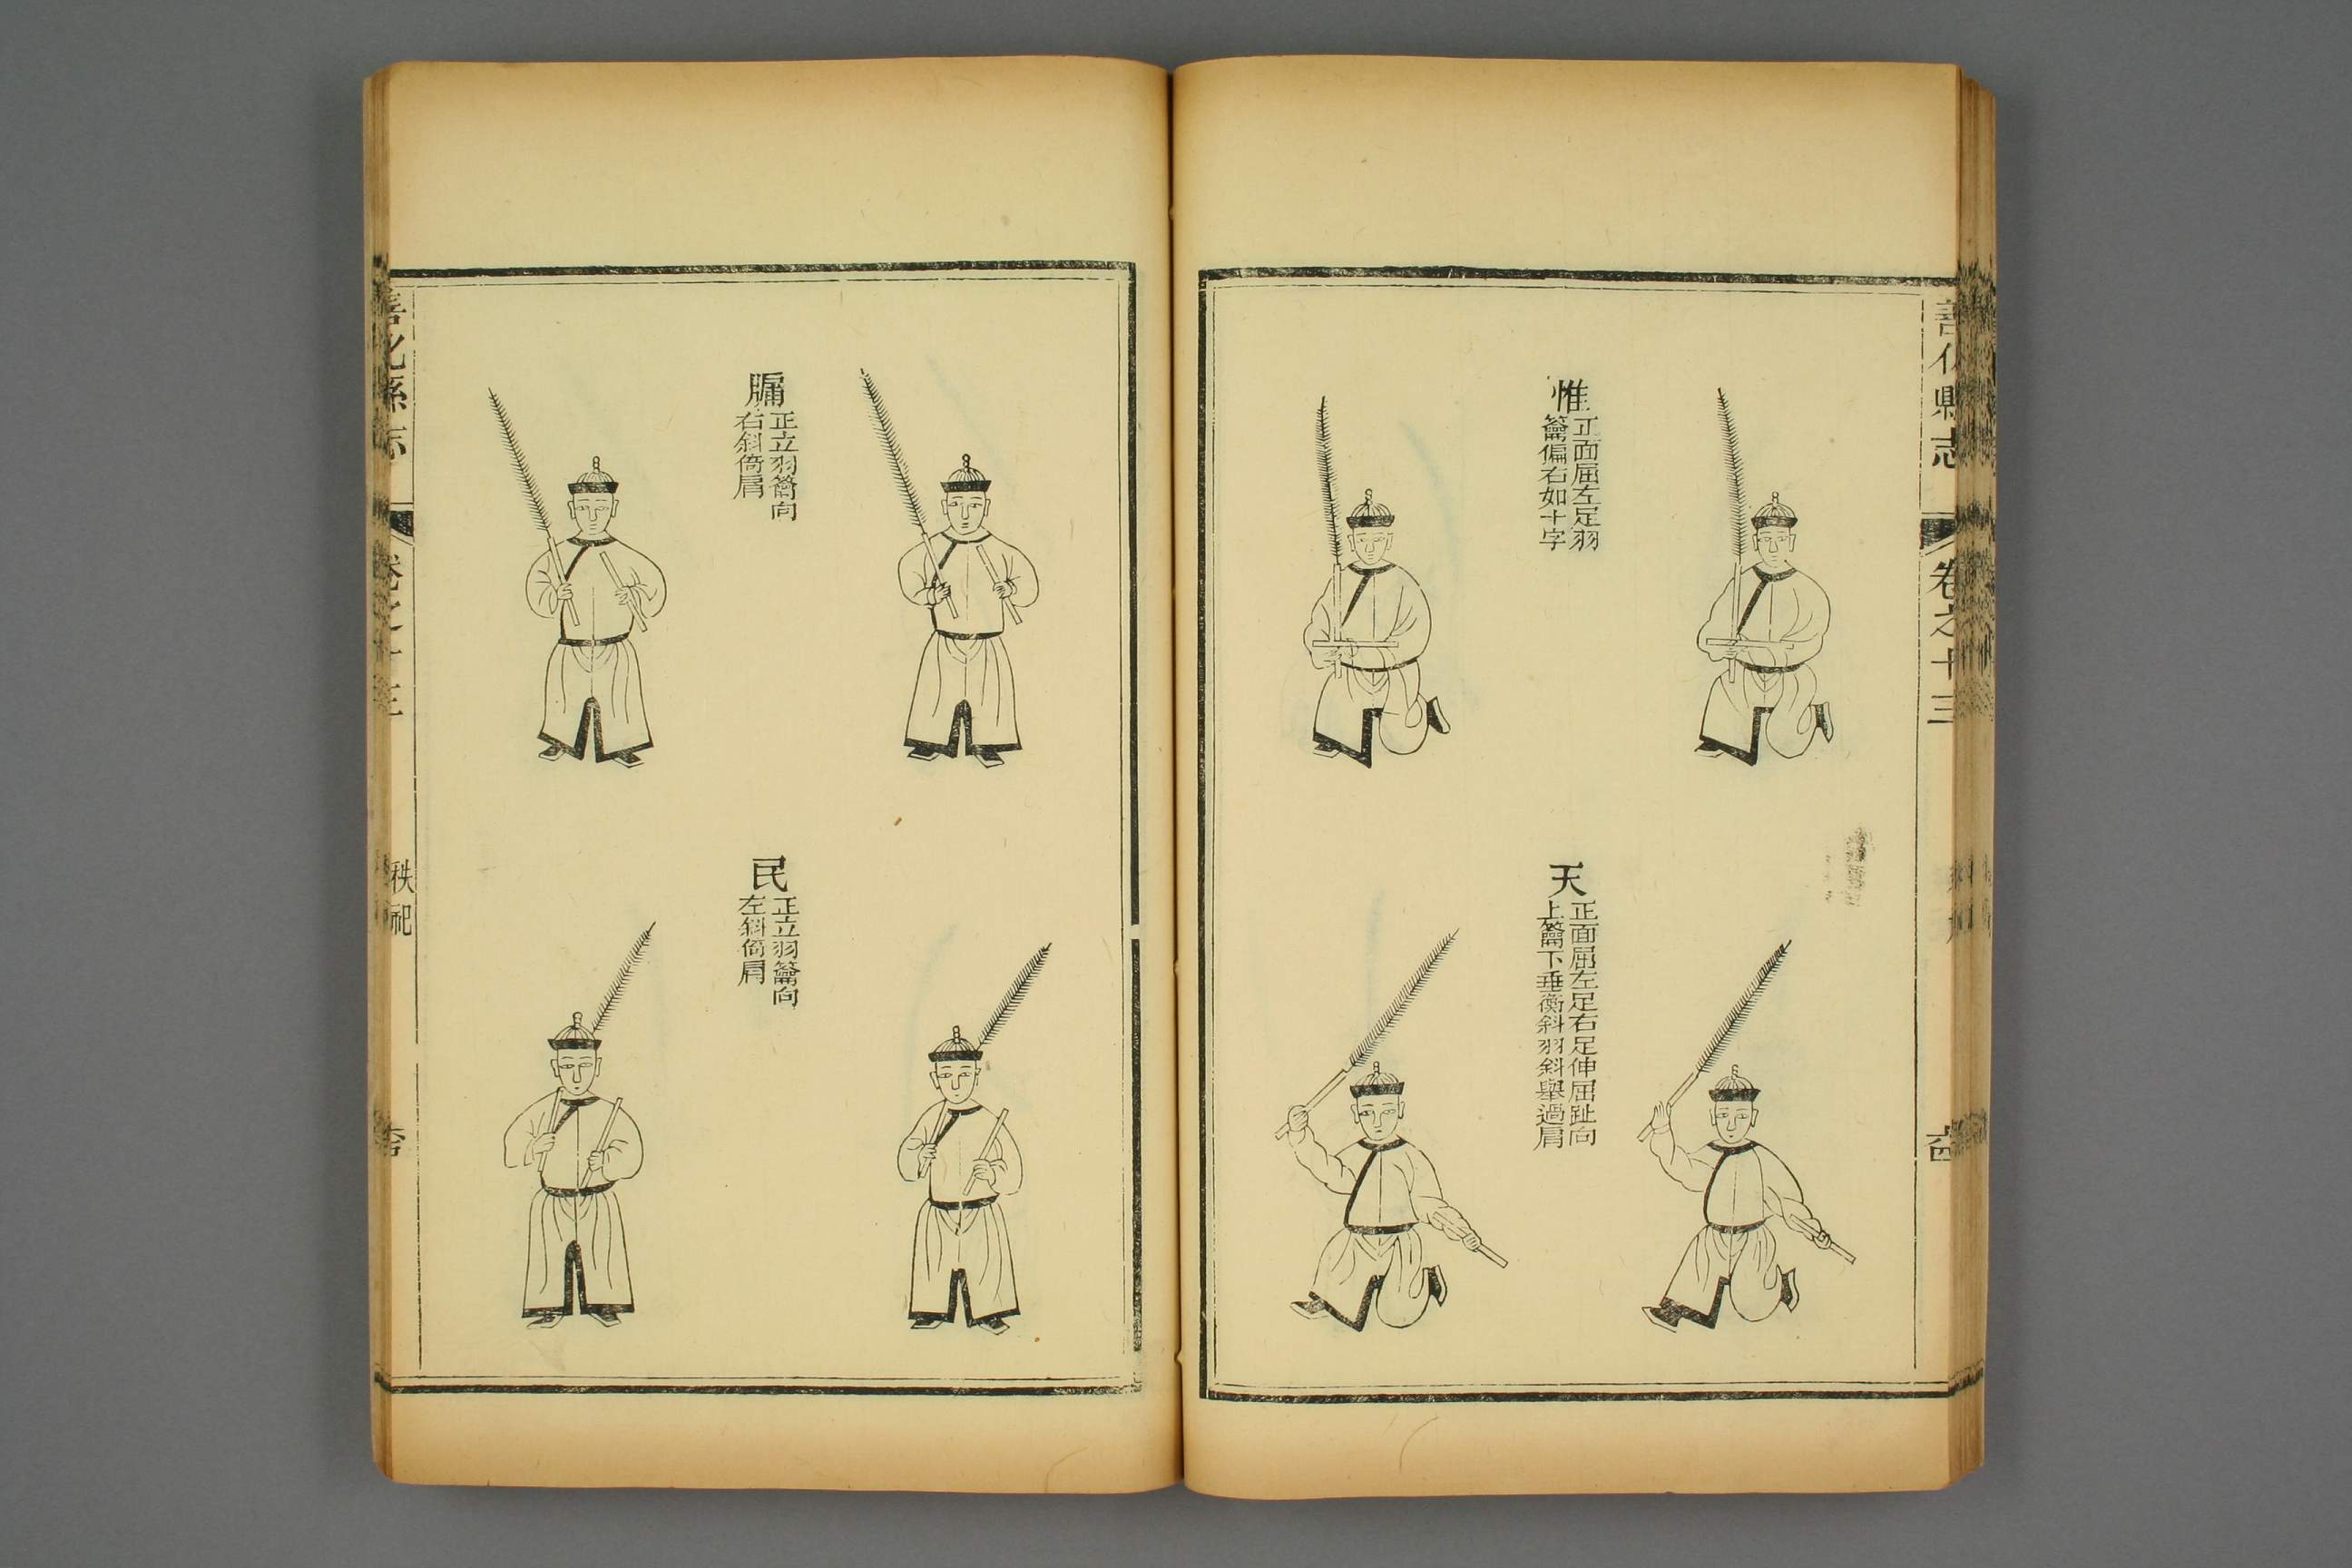 善化縣志
卷之十三
惟
正面屈左足羽
籥偏右如十字
天
正面屈左足右足伸屈趾向
上籥下垂衡斜羽斜舉過肩
牖
正立羽籥向
右斜倚肩
民
正立羽籥向
左斜倚肩
善化縣志
卷之十三
秩祀